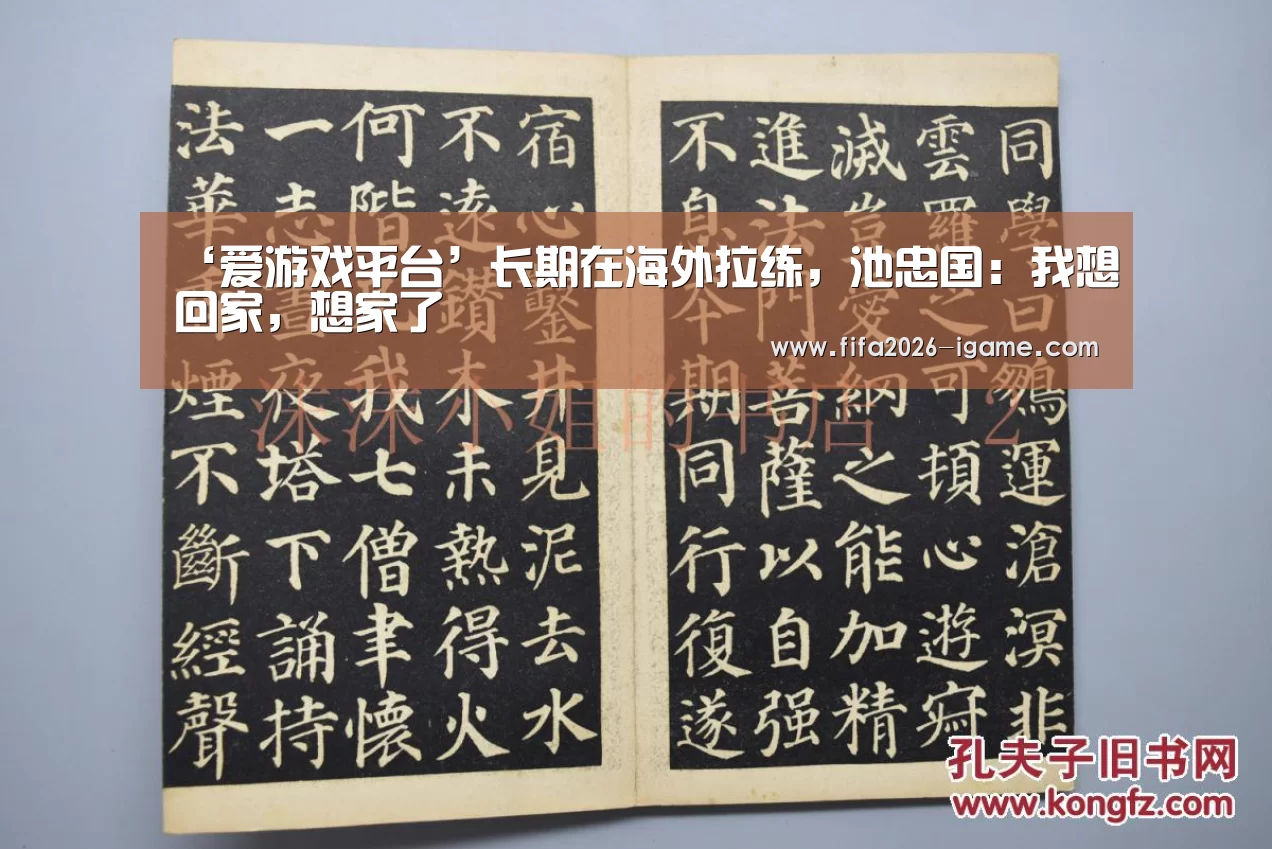 ‘爱游戏平台’长期在海外拉练，池忠国：我想
回家，想家了
www.fifa2026-igame.com
同學曰鵬運滄溟非
雲羅之可頓心遊寂
滅豈愛網之能加精
進法門菩薩以自强
不息本期同行復遂
宿心鑿井見泥去水
不遠鑽木未熱得火
何階凡我七僧聿懷
一志晝夜塔下誦持
法華香煙不斷經聲
小姐的书店 2
孔夫子旧书网
www.kongfz.com